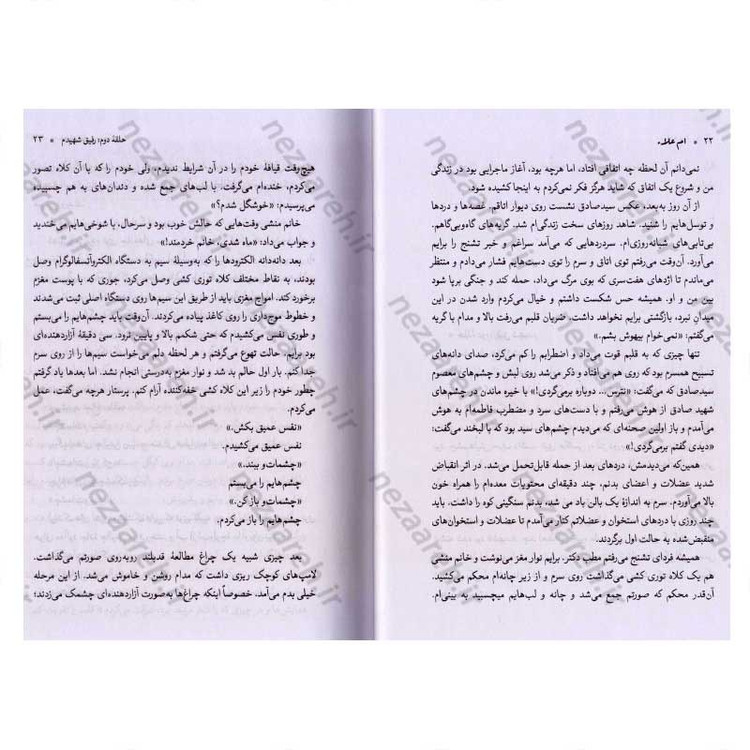 ۲۲ * ام علاء
نمی‌دانم آن لحظه چه اتفاقی افتاد، اما هرچه بود، آغاز ماجرایی بود در زندگی
من و شروع یک اتفاق که شاید هرگز فکر نمی‌کردم به اینجا کشیده شود.
از آن روز به‌بعد، عکس سیدصادق نشست روی دیوار اتاقم. غصه‌ها و دردها
و توسل‌هایم را شنید. شاهد روزهای سخت زندگی‌ام شد. گریه‌های گاه‌وبی‌گاهم.
بی‌تابی‌های شبانه‌روزی‌ام. سردردهایی که می‌آمد سراغم و خبر تشنج را برایم
می‌آورد. آن‌وقت می‌رفتم توی اتاق و سرم را توی دست‌هایم فشار می‌دادم و منتظر
می‌ماندم تا اژدهای هفت‌سری که بوی مرگ می‌داد، حمله کند و جنگی برپا شود
بین من و او. همیشه حس شکست داشتم و خیال می‌کردم وارد شدن در این
میدان نبرد، بازگشتی برایم نخواهد داشت. ضربان قلبم می‌رفت بالا و مدام با گریه
می‌گفتم: «نمی‌خوام بیهوش بشم.»
تنها چیزی که به قلبم قوت می‌داد و اضطرابم را کم می‌کرد، صدای دانه‌های
تسبیح همسرم بود که روی هم می‌افتاد و ذکر می‌شد روی لبش و چشم‌های معصوم
سیدصادق که می‌گفت: «نترس... دوباره برمی‌گردی!» با خیره ماندن در چشم‌های
شهید صادق از هوش می‌رفتم و با دست‌های سرد و مضطرب فاطمه‌ام به هوش
می‌آمدم و باز اولین صحنه‌ای که می‌دیدم چشم‌های سید بود که با لبخند می‌گفت:
«دیدی گفتم برمی‌گردی!»
همین‌که می‌دیدمش، دردهای بعد از حمله قابل‌تحمل می‌شد. در اثر انقباض
شدید عضلات و اعضای بدنم، چند دقیقه‌ای محتویات معده‌ام را همراه خون
بالا می‌آوردم. سرم به اندازهٔ یک بالن باد می‌شد، بدنم سنگینی کوه را داشت. باید
چند روزی با دردهای استخوان و عضلاتم کنار می‌آمدم تا عضلات و استخوان‌های
منقبض‌شده به حالت اول برگردند.
همیشه فردای تشنج می‌رفتم مطب دکتر. برایم نوار مغز می‌نوشت و خانم منشی
هم یک کلاه توری کشی می‌گذاشت روی سرم و از زیر چانه‌ام محکم می‌کشید.
آن‌قدر محکم که صورتم جمع می‌شد و چانه و لب‌هایم می‌چسبید به بینی‌ام.
حلقهٔ دوم: رفیق شهیدم * ۲۳
هیچ‌وقت قیافهٔ خودم را در آن شرایط ندیدم، ولی خودم را که با آن کلاه تصور
می‌کردم، خنده‌ام می‌گرفت. با لب‌های جمع شده و دندان‌های به هم چسبیده
می‌پرسیدم: «خوشگل شدم؟»
خانم منشی وقت‌هایی که حالش خوب بود و سرحال، با شوخی‌هایم می‌خندید
و جواب می‌داد: «ماه شدی، خانم خردمند!»
بعد دانه‌دانه الکترودها را که به‌وسیلهٔ سیم به دستگاه الکتروآنسفالوگرام وصل
بودند، به نقاط مختلف کلاه توری کشی وصل می‌کرد، جوری که با پوست مغزم
برخورد کند. امواج مغزی باید از طریق این سیم‌ها روی دستگاه اصلی ثبت می‌شدند
و خطوط موج‌داری را روی کاغذ پیاده می‌کردند. آن‌وقت باید چشم‌هایم را می‌بستم
و طوری نفس می‌کشیدم که حتی شکمم بالا و پایین نرود. سی دقیقهٔ آزاردهنده‌ای
بود برایم. حالت تهوع می‌گرفتم و هر لحظه دلم می‌خواست سیم‌ها را از روی سرم
جدا کنم. بار اول حالم بد شد و نوار مغزم به‌درستی انجام نشد. اما بعدها یاد گرفتم
چطور خودم را زیر این کلاه کشی خفه‌کننده آرام کنم. پرستار هرچه می‌گفت، عمل
می‌کردم.
«نفس عمیق بکش.»
نفس عمیق می‌کشیدم.
«چشمات‌و ببند.»
چشم‌هایم را می‌بستم
«چشمات‌و باز کن.»
چشم‌هایم را باز می‌کردم.
بعد چیزی شبیه یک چراغ مطالعهٔ قدبلند روبه‌روی صورتم می‌گذاشت.
لامپ‌های کوچک ریزی داشت که مدام روشن و خاموش می‌شد. از این مرحله
خیلی بدم می‌آمد. خصوصاً اینکه چراغ‌ها به‌صورت آزاردهنده‌ای چشمک می‌زدند؛
nezaareh.ir